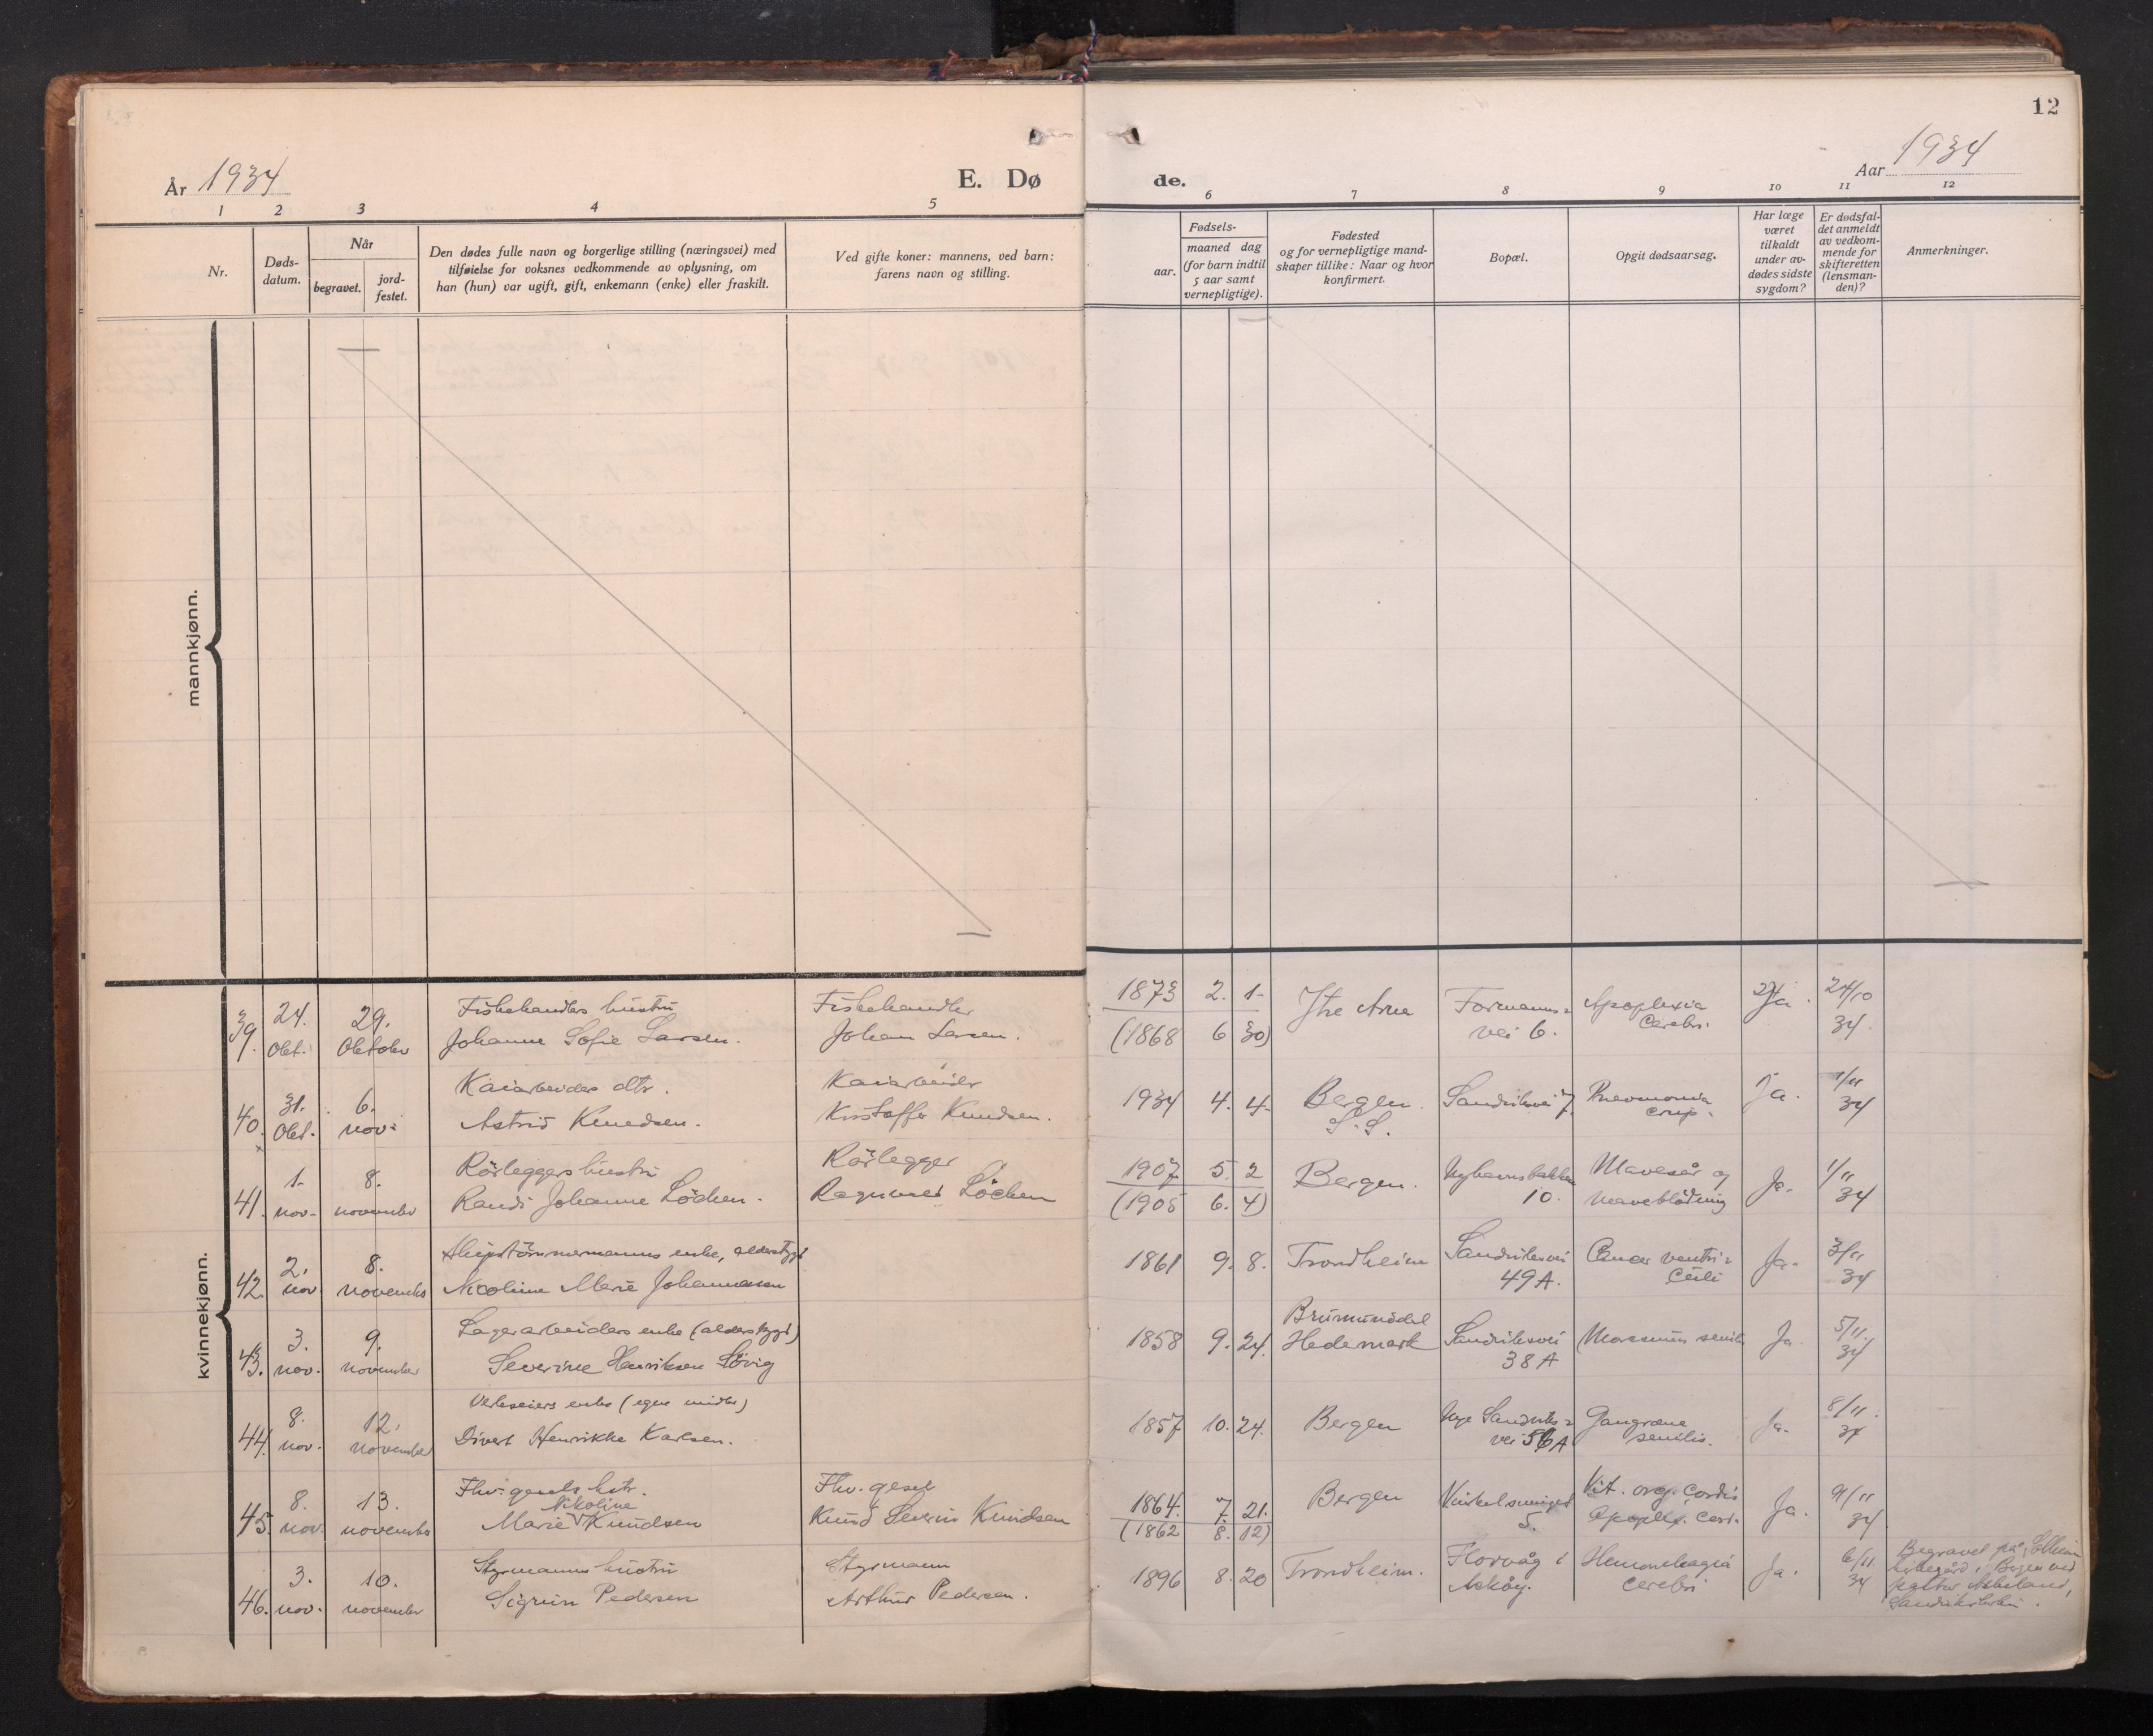 12
År 1934
E. Dø
de.
Aar 1934
1 2 3 4 5
6 7 8 9 10 11 12
Nr.
Døds-
datum.
Når
begravet.
jord-
festet.
Den dødes fulle navn og borgerlige stilling (næringsvei) med
tilføielse for voksnes vedkommende av oplysning, om
han (hun) var ugift, gift, enkemann (enke) eller fraskilt.
Ved gifte koner: mannens, ved barn:
farens navn og stilling.
Fødsels-
aar.
maaned dag
(for barn indtil
5 aar samt
vernepligtige).
Fødested
og for vernepligtige mand-
skaper tillike: Naar og hvor
konfirmert.
Bopæl.
Opgit dødsaarsag.
Har læge
været
tilkaldt
under av-
dødes sidste
sygdom?
Er dødsfal-
det anmeldt
av vedkom-
mende for
skifteretten
(lensman-
den)?
Anmerkninger.
mannkjønn.
kvinnekjønn.
39. 24. Okt. 29. Oktober
Fiskehandlers hustru
Johanne Sofie Larsen.
Fiskehandler
Johan Larsen.
1873 2. 1.
(1868 6 30)
Ytre Arna
Formanns-
vei 6.
Apoplexia
Cerebri.
Ja.
24/10
34.
40. 31. Okt. 6. nov.
Kaiarbeiders dtr.
Astrid Knudsen.
Kaiarbeider
Kristoffer Knudsen.
1934 4. 4.
Bergen.
S. S.
Sandviksvei 7.
Pneumonia
croup.
Ja.
1/11
34
41. 1. nov. 8. november
Rørleggers hustru
Randi Johanne Löchen.
Rørlegger
Ragnvald Löchen
1907 5. 2
(1905 6. 4)
Bergen.
Nyhavnsbakken
10.
Mavesår og
maveblödning
Ja.
1/11
34
42. 2. nov. 8. november
Skipstömmermanns enke, alderstrygd
Nicoline Marie Johannesen
1861 9. 8.
Trondheim
Sandviksvei
49A.
Cancer ventri-
culi
Ja.
3/11
34
43. 3. nov. 9. november
Lagerarbeiders enke (alderstrygd)
Severine Henriksen Lövig
1858 9. 24.
Brumunddal
Hedemark
Sandviksvei
38 A
Marasmus senilis
Ja
5/11.
34
44. 8. nov. 12. november
Verkseiers enke (egne midler)
Divert Henrikke Karlsen.
1857 10. 24.
Bergen
Nye Sandviks-
vei 56 A
Gangræne
senilis.
Ja.
8/11.
34
45. 8. nov. 13. november
Fhv. gesels hstr.
Nikoline
Marie Knudsen
Fhv. gesel
Knud Severin Knudsen
1864. 7. 21.
(1862 8. 12)
Bergen
5.
Vit. org. cordis
Apoplex. cer.
Ja.
9/11
34
46. 3. nov. 10. november
Styrmanns hustru
Sigrun Pedersen
Styrmann
Arthur Pedersen.
1896 8. 20
Trondheim.
Florvåg i
Askøy.
Hemorrhagia
cerebri
Ja.
6/11
34
Begravet på Solheim
kirkegård i Bergen ved
pastor Askeland,
Sandvikskirken.